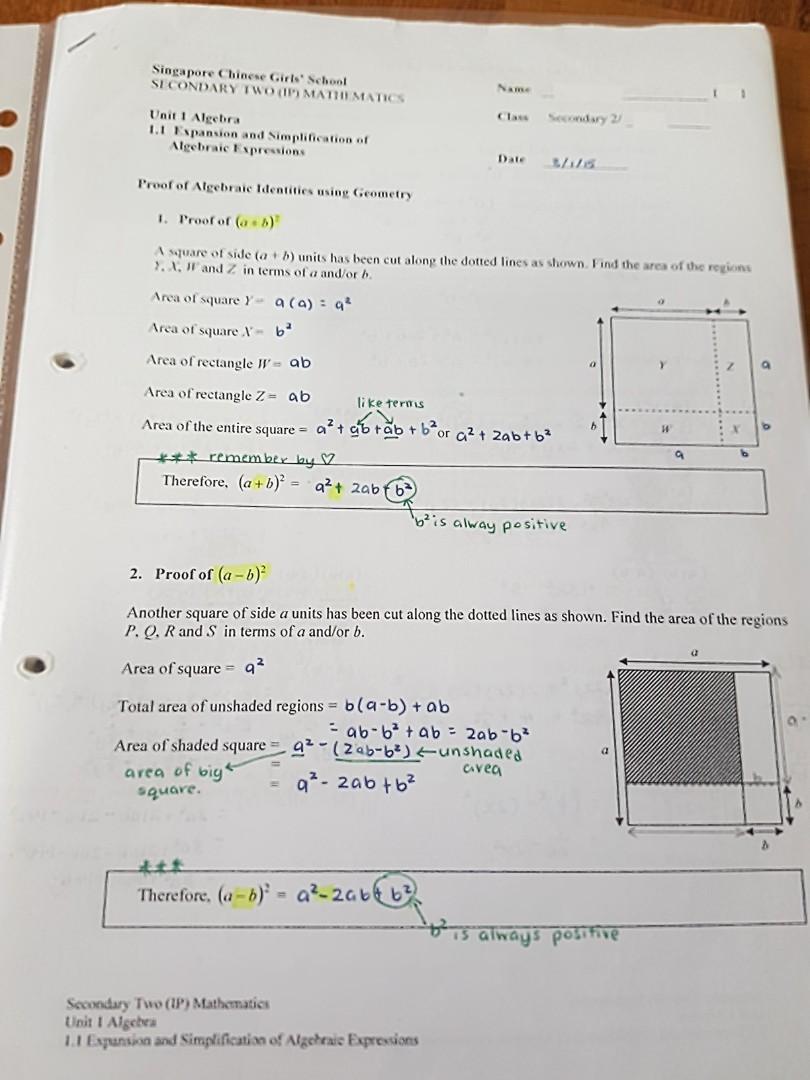 Singapore Chinese Girls' School
SECONDARY TWO (IP) MATHEMATICS
Name
[ ]
Unit 1 Algebra
Class Secondary 2/
1.1 Expansion and Simplification of
Algebraic Expressions
Date 8/1/15
Proof of Algebraic Identities using Geometry
1. Proof of (a + b)²
A square of side (a + b) units has been cut along the dotted lines as shown. Find the area of the regions
Y, X, W and Z in terms of a and/or b.
Area of square Y = a(a) = a²
Area of square X = b²
Area of rectangle W = ab
Area of rectangle Z = ab
like terms
Area of the entire square = a² + ab + ab + b² or a² + 2ab + b²
a b
a Y Z a
b W X b
a b
*** remember by ♡
Therefore, (a + b)² = a² + 2ab + b²
b² is alway positive
2. Proof of (a – b)²
Another square of side a units has been cut along the dotted lines as shown. Find the area of the regions
P, Q, R and S in terms of a and/or b.
Area of square = a²
Total area of unshaded regions = b(a-b) + ab
= ab - b² + ab = 2ab - b²
Area of shaded square = a² - (2ab - b²) ← unshaded
area
area of big
square.
=
= a² - 2ab + b²
a
a
b
b
b
***
Therefore, (a – b)² = a² - 2ab + b²
b² is always positive
Secondary Two (IP) Mathematics
Unit 1 Algebra
1.1 Expansion and Simplification of Algebraic Expressions